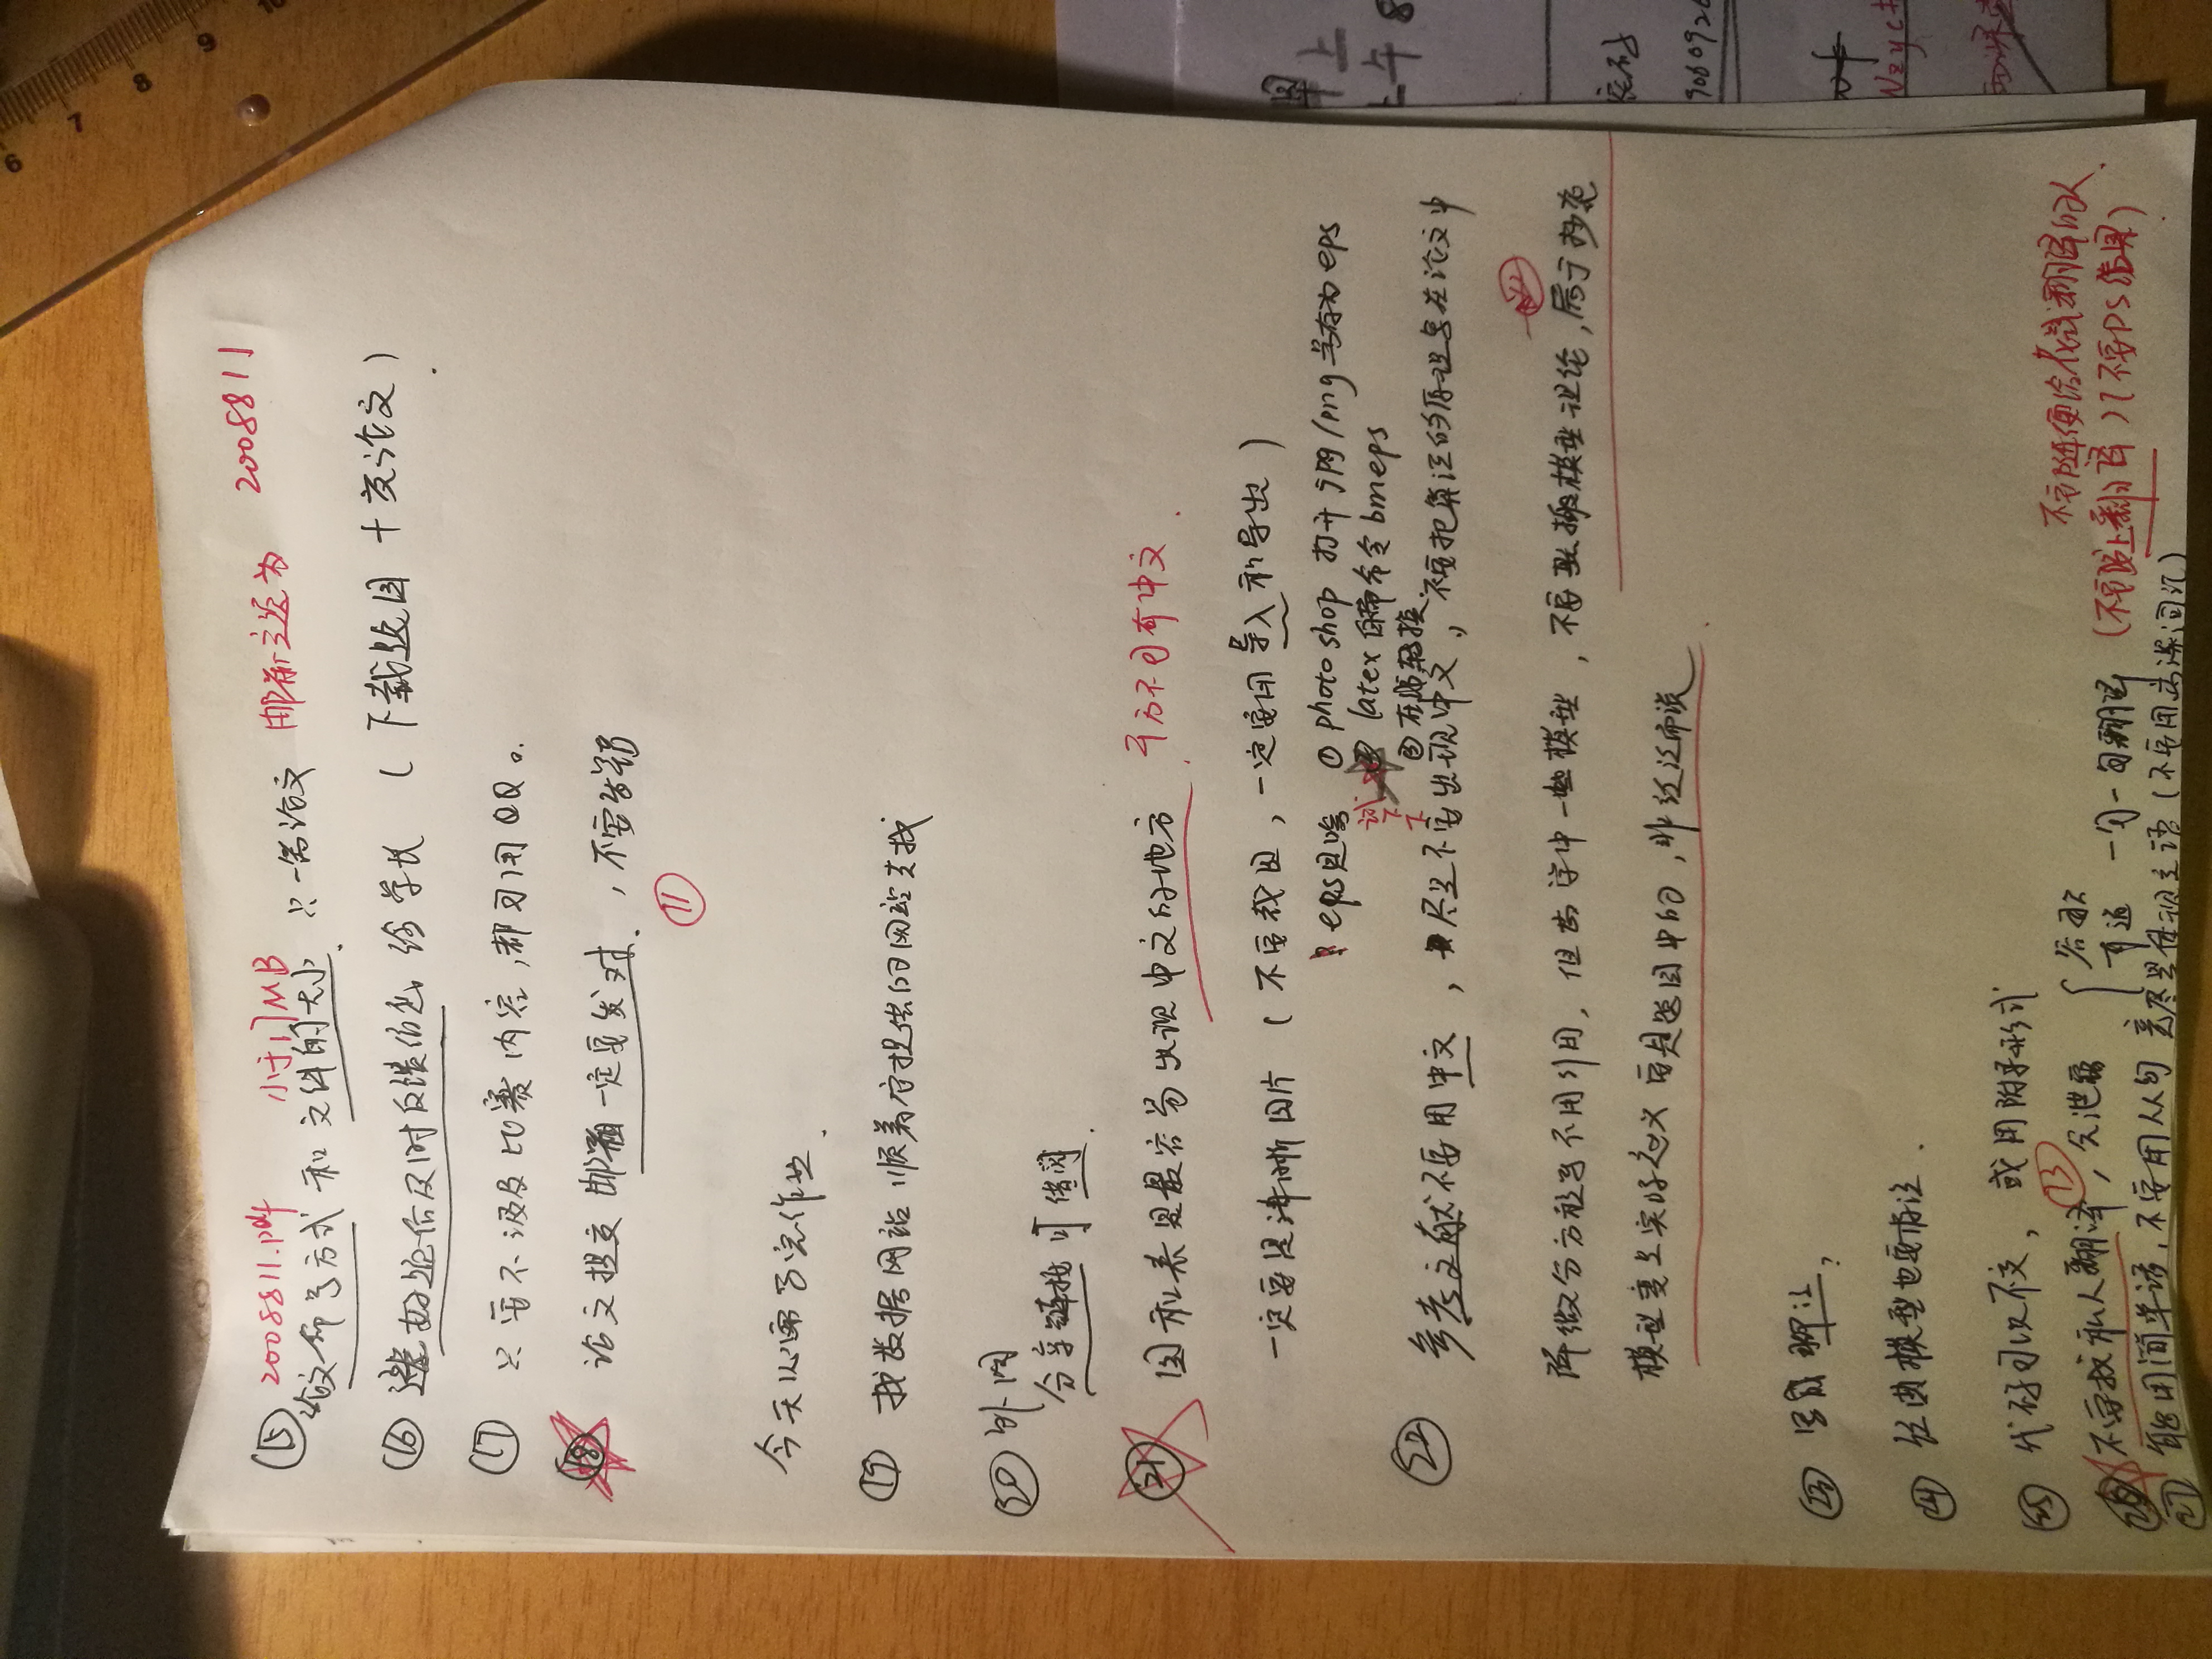 ⑮ 2008811.pdf 小于17MB 邮箱主题为 2008811
论文命名方式和文件的大小. 只一篇论文
⑯ 选好题后及时反馈信息给学长 (下载题目 + 交论文)
⑰ 只要不涉及比赛内容,都可用QQ。
⑱ 论文提交邮箱一定要发对. ,不要出错
⑪
今天必需写完作业.
⑲ 找数据网站 顺着官提供的网站去找
⑳ 外网
分享链接可借阅.
㉑ 图和表是最容易出现中文的地方. 千万不可有中文.
一定要是清晰图片 (不要截图,一定要用导入和导出)
eps是啥 ① photoshop 打开 jpg/png 另存为eps
试下下 ② latex 自带命令 bmeps
③ 在线转换.
㉒ 参考文献不要用中文, 尽量不要出现中文, 不要把算法的原理写在论文中
12
除微分方程等不用引用, 但数学中一些模型, 不要照搬模型理论,属于抄袭
模型变量实际意义要是题目中的,非泛泛而谈.
㉓ 写成脚注,
㉔ 经典模型也要标注.
㉕ 代码可以不交, 或用附录形式
⑬ 不要随便给在线翻译的人.
㉖ 不要找私人翻译, 会泄露 { 谷歌
有道 一句一句翻译 (不要贴上翻译) (不要PS结果)
㉗ 能用简单语,不要用从句 尽量体现主语 (不要用高深词汇)